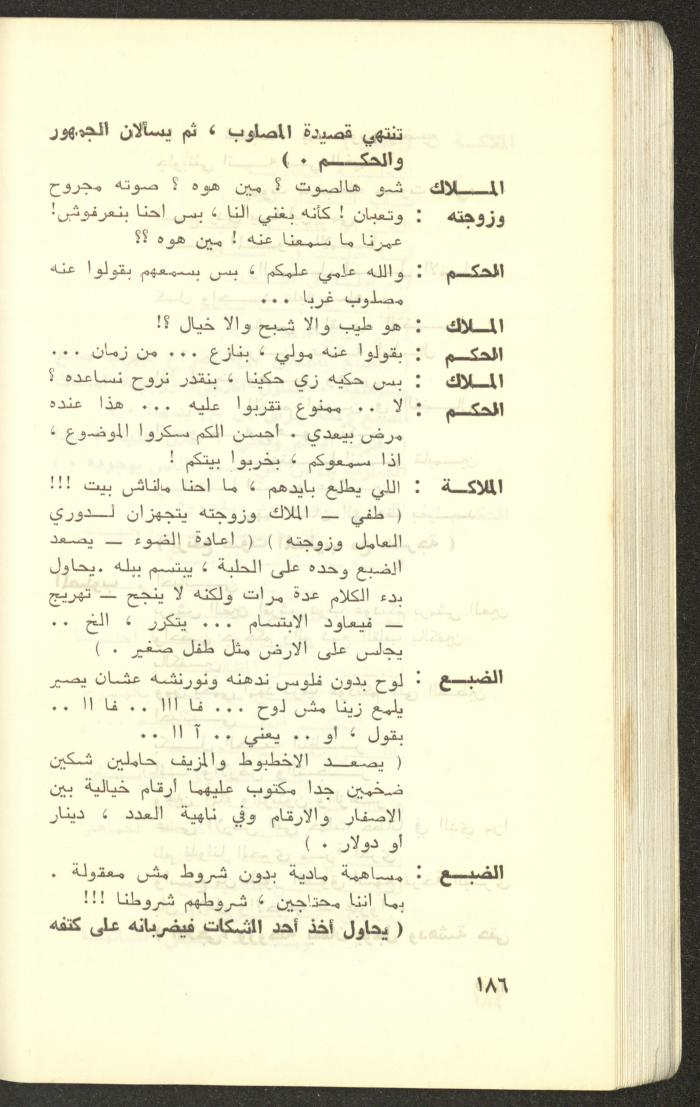 تنتهي قصيدة المصلوب ، ثم يسألان الجمهور
والحكـــم ٠ )
المـــلاك شو هالصوت ؟ مين هوه ؟ صوته مجروح
وزوجته : وتعبان ! كأنه بغني النا ، بس احنا بنعرفوش!
عمرنا ما سمعنا عنه ! مين هوه ؟؟
الحكــم : والله علمي علمكم ، بس بسمعهم بقولوا عنه
مصلوب غربا ...
المــلاك : هو طيب والا شبح والا خيال ؟!
الحكــم : بقولوا عنه مولي ، بنازع ... من زمان ...
المــلاك : بس حكيه زي حكينا ، بنقدر نروح نساعده ؟
الحكــم : لا .. ممنوع تقربوا عليه ... هذا عنده
مرض بيعدي . احسن الكم سكروا الموضوع ،
اذا سمعوكم ، بخربوا بيتكم !
الملاكــة : اللي يطلع بايدهم ، ما احنا مالناش بيت !!!
( طفي ــ الملاك وزوجته يتجهزان لــدوري
العامل وزوجته ) ( اعادة الضوء ــ يصعد
الضبع وحده على الحلبة ، يبتسم ببله .يحاول
بدء الكلام عدة مرات ولكنه لا ينجح ــ تهريج
ــ فيعاود الابتسام ... يتكرر ، الخ ..
يجلس على الارض مثل طفل صغير . )
الضبــع : لوح بدون فلوس ندهنه ونورنشه عشان يصير
يلمع زينا مش لوح ... فا ااا .. فا اا ..
بقول ، او .. يعني .. آ اا ..
( يصعــد الاخطبوط والمزيف حاملين شكين
ضخمين جدا مكتوب عليهما أرقام خيالية بين
الاصفار والارقام وفي ناهية العدد ، دينار
أو دولار ٠ )
الضبــع : مساهمة مادية بدون شروط مش معقولة .
بما اننا محتاجين ، شروطهم شروطنا !!!
( يحاول أخذ أحد الشكات فيضربانه على كتفه
١٨٦